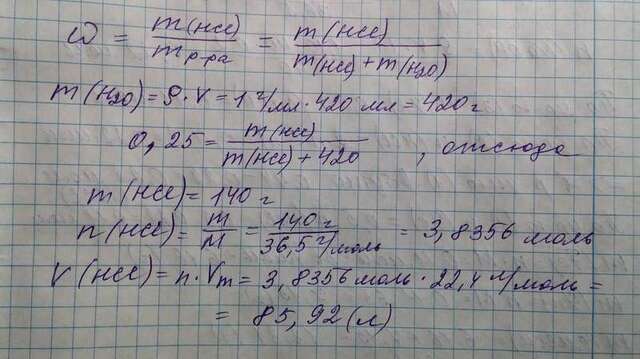 ω = m(HCl)/m р-ра = m(HCl)/(m(HCl) + m(H₂O))
m(H₂O) = ρ · V = 1 г/мл · 420 мл = 420 г
0,25 = m(HCl)/(m(HCl) + 420) , отсюда
m(HCl) = 140 г
n(HCl) = m/M = 140 г/36,5 г/моль = 3,8356 моль
V(HCl) = n · Vm = 3,8356 моль · 22,4 л/моль =
= 85,92 (л)